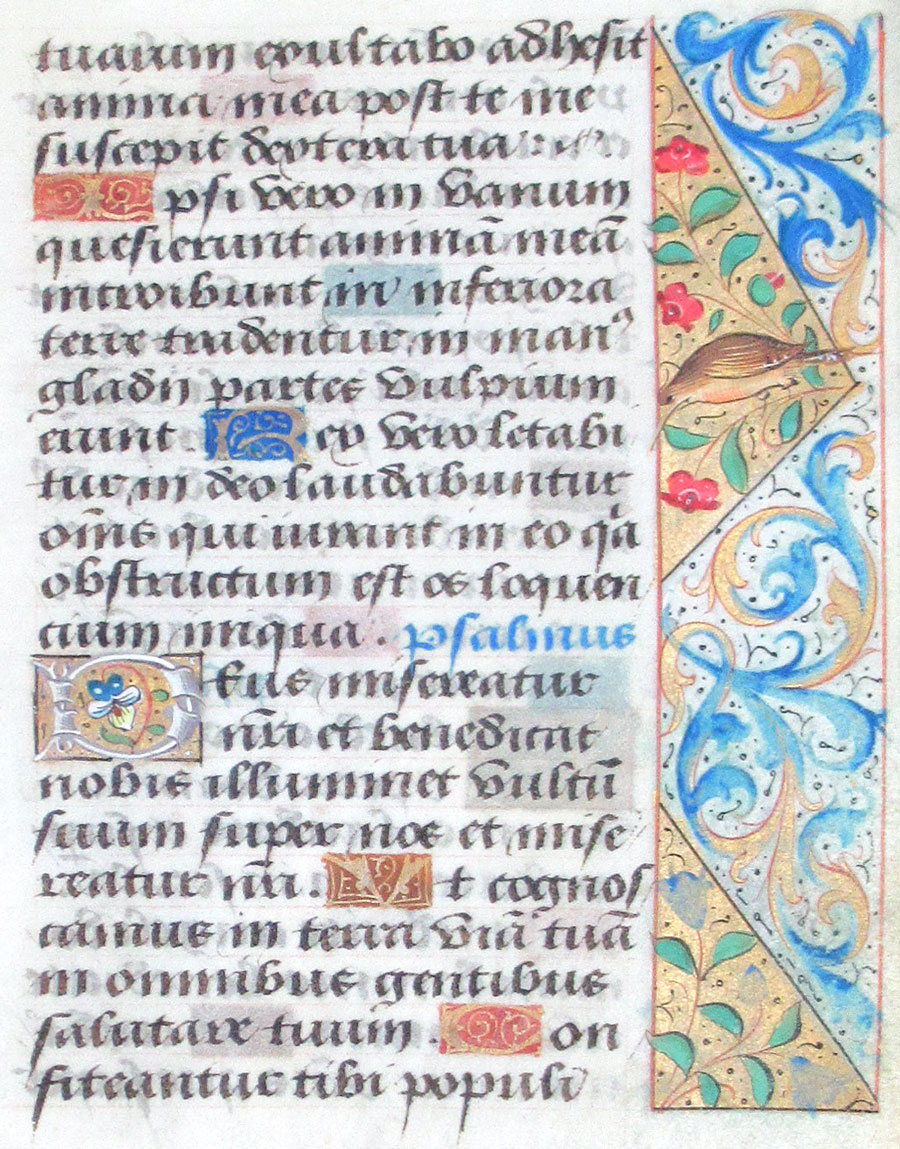 tuarum exultabo adhesit
anima mea post te me
suscepit dextera tua:
Ipsi vero in vanum
quesierunt animā meā
introibunt in inferiora
terre tradentur in manꝰ
gladii partes vulpium
erunt. Rex vero letabi
tur in deo laudabuntur
oms̄ qui iurant in eo q̄a
obstructum est os loquen
cium iniqua. psalmus
Deus misereatur
nr̄i et benedicat
nobis illuminet vultū
suum super nos et mise
reatur nr̄i. Et cognos
camus in terra viā tuā
in omnibus gentibus
salutare tuum. Con
fiteantur tibi populi